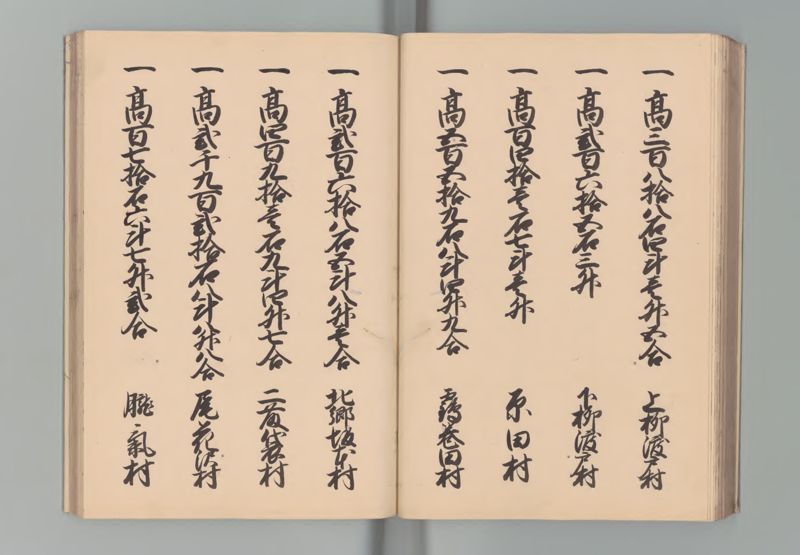 一高三百八拾八石四斗壱升五合 上柳渡戸村
一高弐百六拾五石三升 下柳渡戸村
一高百四拾壱石七斗壱升 原田村
一高五百五拾九石八斗四升九合 鶴巻田村
一高弐百六拾八石五斗八升壱合 北郷坂本村
一高四百九拾壱石九斗四升七合 二藤袋村
一高弐千九百弐拾石八斗八升八合 尾花沢村
一高百七拾石六斗七升弐合 朧気村